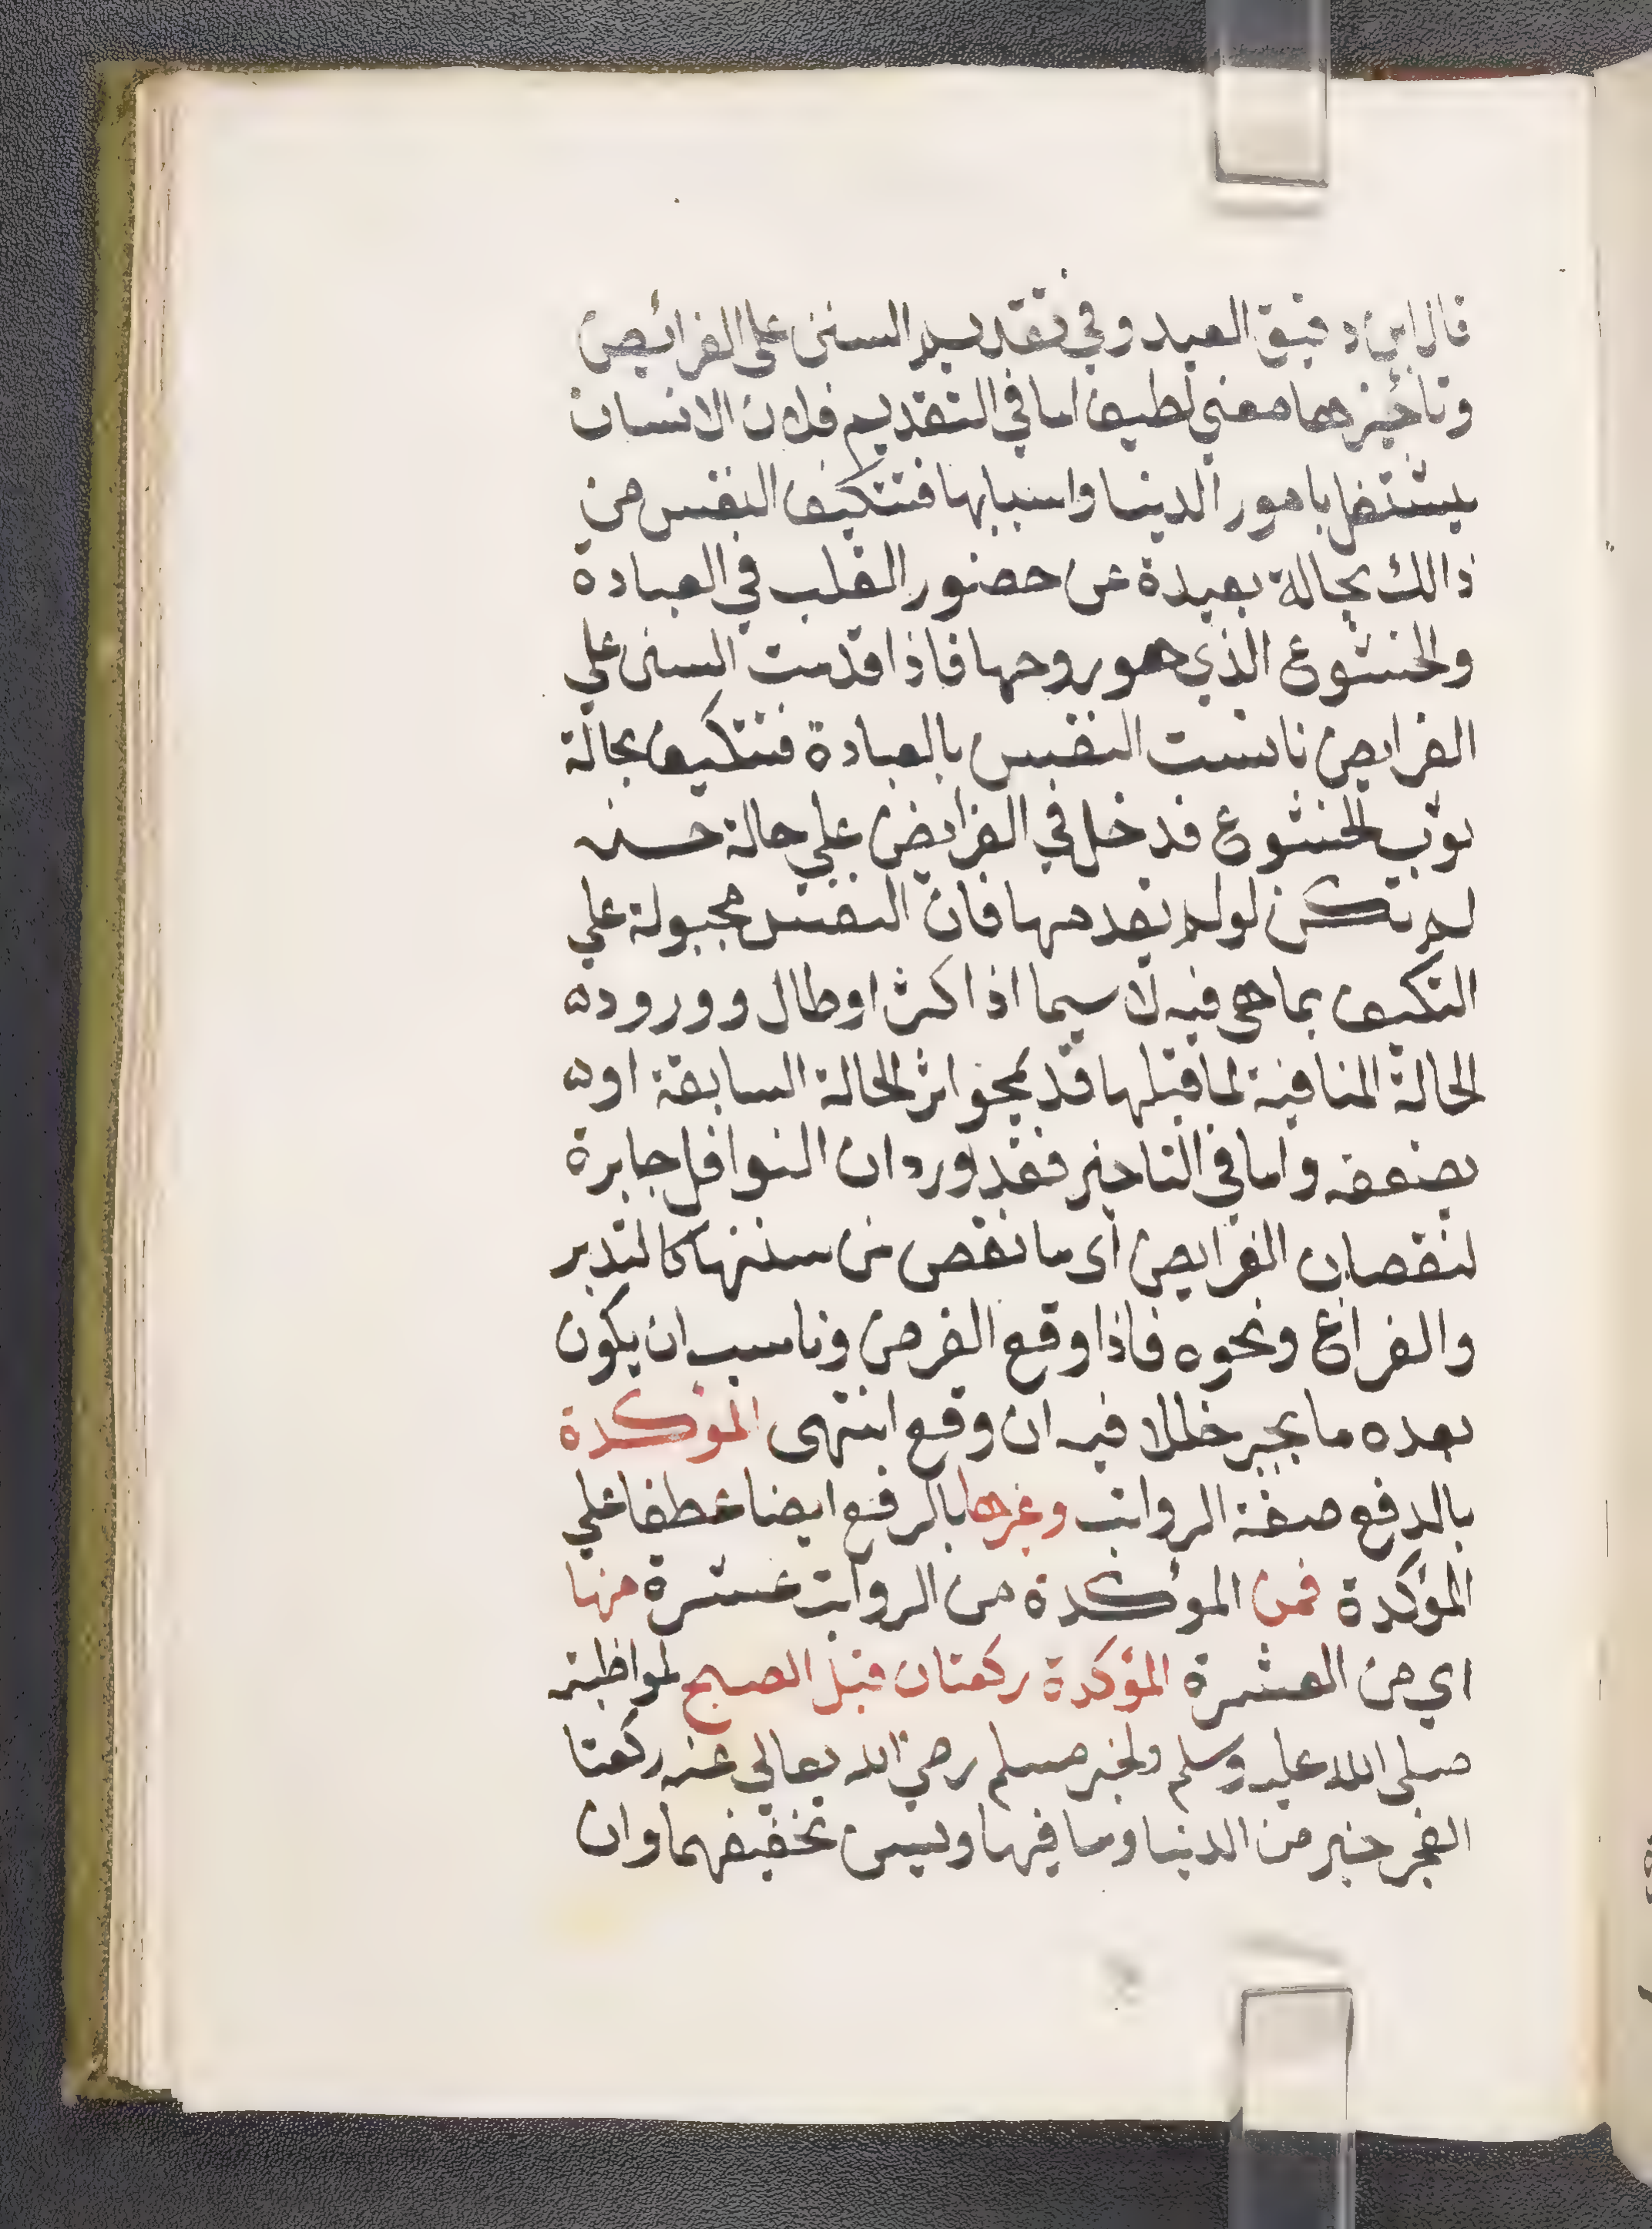 قال ابن دقيق العيد وفي تقديم السنن علي الفرائض
وتأخيرها معني لطيف اما في التقديم فلان الانسان
يشتغل بامور الدنيا واسبابها فتتكيف النفس من
ذالك بحالة بعيدة عن حضور القلب في العبادة
والخشوع الذي هو روحها فاذا قدمت السنن علي
الفرايض تانست النفس بالعبادة فتتكيف بحالة
توب الخشوع فدخل في الفرايض علي حالة حسنه
لم تكن لولم يقدمها فان النفس مجبولة علي
التكيف بما هي فيه لا سيما اذا كثر اوطال وورود
الحالة المنافية لما قبلها قد يمحو اثر الحالة السابقة او
يضعفه واما في التاخير فقد ورد ان النوافل جابرة
لنقصان الفرايض أي ما نقص من سننها كالتدبر
والفراغ ونحوه فاذا وقع الفرض وناسب ان يكون
بعده ما يجبر خللا فيه ان وقع انتهى المؤكدة
بالدفع صفة الرواتب وغيرها بالرفع ايضا عطفا علي
المؤكدة فمن المؤكدة من الرواتب عشرة منها
اي من العشرة المؤكدة ركعتان قبل الصبح لمواظبته
صلى الله عليه وسلم ولخبر مسلم رضي الله تعالي عنه ركعتا
الفجر خير من الدنيا وما فيها ويسن تخفيفهما وان